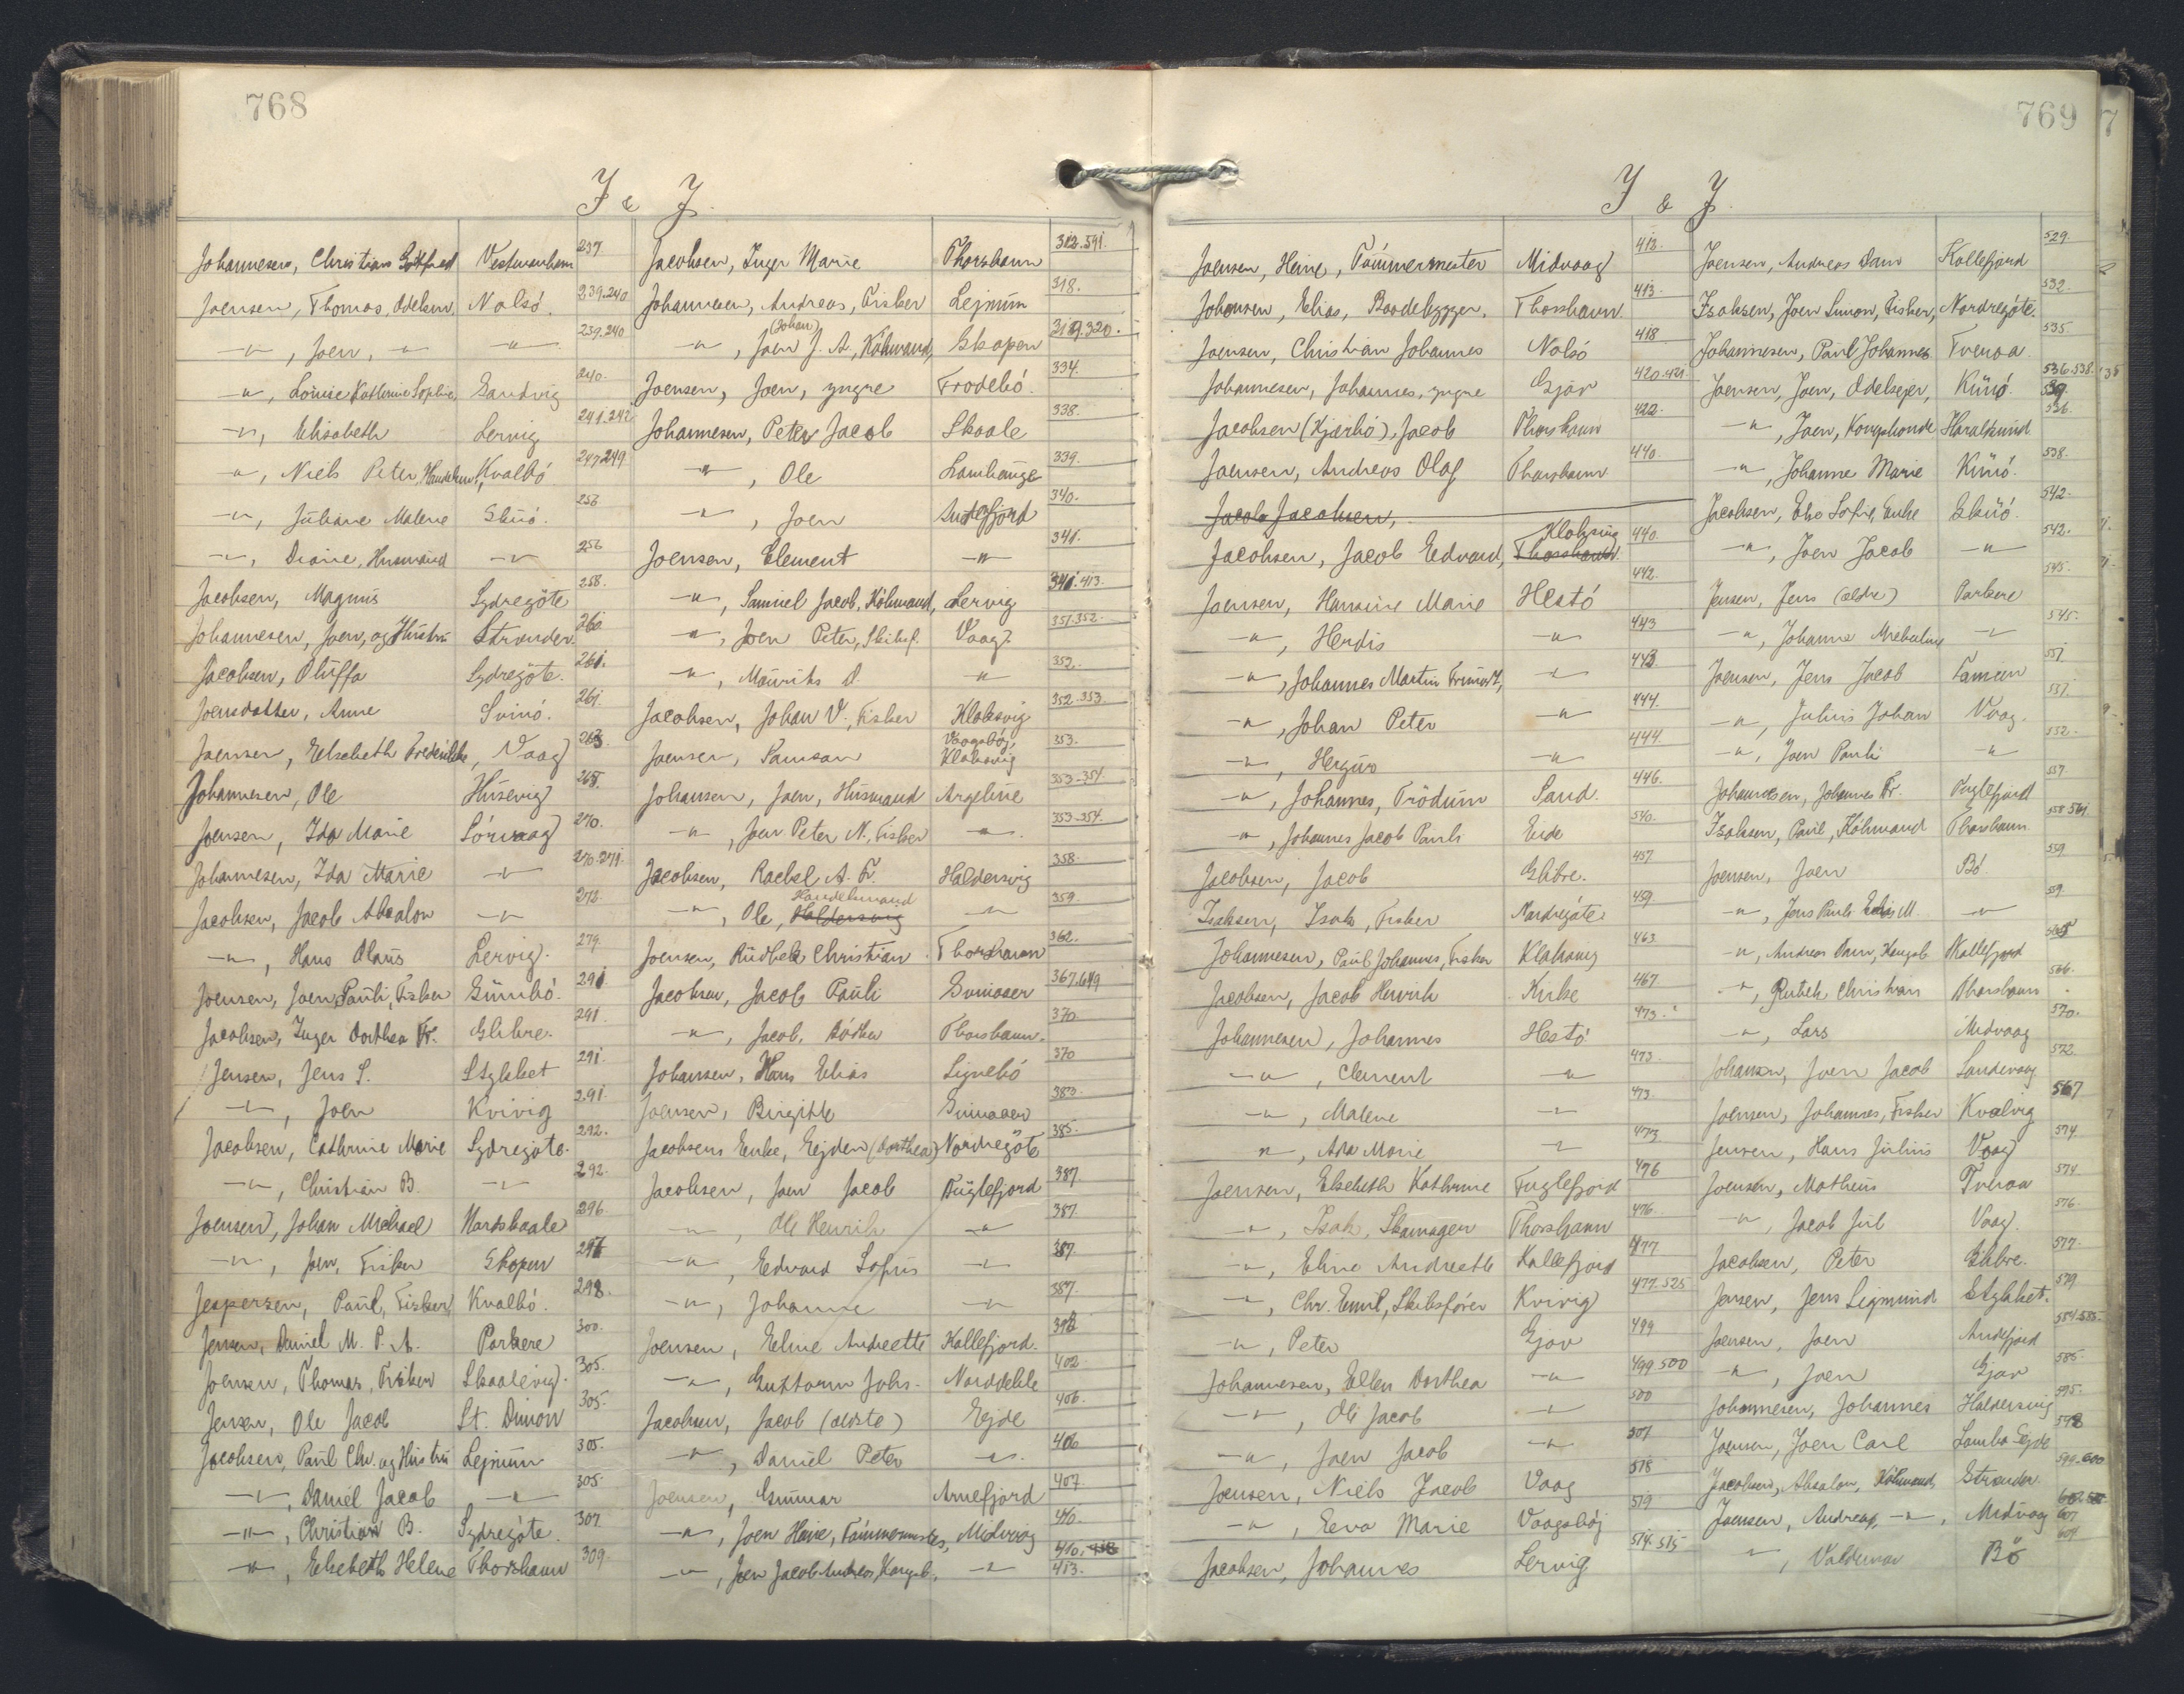 768
I & J.
Johannesen, Christian Gotfred Vestmanhavn 237.
Joensen, Thomas, Odelsm. Nolsö. 239.240
-"-, Joen, -"- -"- 239.240
-"-, Louise Kathrine Sophie, Sandvig 240.
-"-, Elisabeth Lervig 241.242
-"-, Niels Peter, Handelsm., Kvalbö 247.249.
-"-, Juliane Malene Skuö. 256
-"-, Diane, Husmand -"- 256
Jacobsen, Magnus Sydregöte 258.
Johannesen, Joen, og Hustru Strender. 260.
Jacobsen, Oluffa Sydregöte. 261.
Joensdatter, Anne Svinö. 261.
Joensen, Elsebeth Frederikke, Vaag 263.
Johannesen, Ole Husevig 265.
Joensen, Ida Marie Sörvaag 270.
Johannesen, Ida Marie -"- 270.271.
Jacobsen, Jacob Absalon -"- 272.
-"-, Hans Olaus Lervig. 279.
Joensen, Joen Pauli, Fisker Gunnbö. 291.
Jacobsen, Inger Dorthea Fr. Glibre. 291.
Jensen, Jens S. Stykket 291.
-"-, Joen Kvivig 291.
Jacobsen, Cathrine Marie Sydregöte. 292.
-"-, Christian B. -"- 292.
Joensen, Johan Michael Nordskaale 296.
-"-, Joen, Fisker Skopen 297
Jespersen, Paul, Fisker, Kvalbö. 298.
Jensen, Daniel M. P. A. Porkere 300.
Joensen, Thomas, Fisker Skaalevig. 305.
Jensen, Ole Jacob St. Dimon 305.
Jacobsen, Paul Chr. og Hustru Lejnum 305.
-"-, Daniel Jacob -"- 305.
-"-, Christian B. Sydregöte. 307.
-"-, Elsebeth Helene Thorshavn 309.
Jacobsen, Inger Marie Thorshavn 312.591.
Johannesen, Andreas, Fisker Lejnum 318.
-"-, Joen (Johan) J. A., Köbmand, Skopen 319.320.
Joensen, Joen, yngre Frodebö. 334.
Johannesen, Peter Jacob Skaale 338.
-"-, Ole Lambhauge 339.
-"-, Joen Andefjord 340.
Joensen, Clement -"- 341.
-"-, Samuel Jacob, Köbmand, Lervig 341.413.
-"-, Joen Peter, Skibsf. Vaag 351.352.
-"-, Mauritz D. -"- 352.
Jacobsen, Johan V., Fisker Klaksvig 352-353
Joensen, Samson Vaagsböj, Klaksvig 353.
Johansen, Joen, Husmand Argeline 353-354
-"-, Joen Peter N., Fisker -"-. 353-354.
Jacobsen, Rachel A. F. Haldersvig 358.
-"-, Ole, Haldersvig Handelsmand -"- 359.
Joensen, Rudbek Christian Thorshavn 362.
Jacobsen, Jacob Pauli Svinaaer 367.649
-"-, Jacob, Bödker Thorshavn. 370.
Johansen, Hans Elias Signebö 370
Joensen, Birgitte Svinaaer 383.
Jacobsens Enke, Ejden (Dorthea) Nordregöte 385.
Jacobsen, Joen Jacob Fuglefjord 387.
-"-, Ole Henrik -"- 387.
-"-, Edvard Sofus -"- 387
-"-, Johanne -"- 387.
Joensen, Eline Andreette Kollefjord. 398
-"-, Guttorm Johs. Norddeble 402
Jacobsen, Jacob (ældste) Ejde 406.
-"-, Daniel Peter -"-. 406
Joensen, Gunnar Arnefjord 407.
-"-, Joen Heine, Tömmermester, Midvaag 410.
-"-, Joen Jacob Andreas, Kongsb. -"- 410. 413.
769
I & J.
Joensen, Heine, Tömmermester Midvaag 412.
Johansen, Elias, Baadebygger, Thorshavn 413.
Joensen, Christian Johannes Nolsö 418
Johannesen, Johannes, yngre Gjov 420.421
Jacobsen (Kjærbö), Jacob Thorshavn 422.
Joensen, Andreas Olaf Thorshavn 440
Jacob Jacobsen,
Jacobsen, Jacob Edvard, Thorshavn Klaksvig 440.
Joensen, Hansine Marie Hestö 442.
-"-, Herdis -"- 443
-"-, Johannes Martin -"- 443.
-"-, Johan Peter -"- 444.
-"-, Hergus -"- 444.
-"-, Johannes, Trödum Sand. 446.
-"-, Johannes Jacob Pauli Eide 540.
Jacobsen, Jacob Glibre. 457
Isaksen, Isak, Fisker Nordregöte 459.
Johannesen, Paul Johannes, Fisker Klaksvig 463
Jacobsen, Jacob Henrik Kirke 467.
Johannesen, Johannes Hestö 473.
-"-, Clement -"- 473.
-"-, Malene -"- 473.
-"-, Ada Marie -"- 473
Joensen, Elsebeth Kathrine Fuglefjord 476
-"-, Isak, Skomager Thorshavn 476.
-"-, Eline Andreette Kollefjord 477
-"-, Chr. Emil, Skibsförer Kvivig 477.525
-"-, Peter Gjov 499
Johannesen, Ellen Dorthea -"- 499.500
-"-, Ole Jacob -"- 500
-"-, Joen Jacob -"- 507
Joensen, Niels Jacob Vaag 518
-"-, Eeva Marie Vaagsböj 519
Jacobsen, Johannes Lervig 514.515
Joensen, Andreas Dam Kollefjord 529.
Isaksen, Joen Simon, Fisker, Nordregöte. 532.
Johannesen, Paul Johannes Tveraa. 535
Joensen, Joen, Odelsejer, Kunö. 536.538. 539
-"-, Joen, Kongsbonde Haraldsund 536.
-"-, Johanne Marie Kunö. 538.
Jacobsen, Else Sofie, Enke Skuö. 542.
-"-, Joen Jacob -"- 542.
Jensen, Jens (ældre) Porkere 545.
-"-, Johanne Mikkeline -"- 545.
Joensen, Jens Jacob Famien 551
-"-, Julius Johan Vaag. 551.
-"-, Joen Pauli -"- 552.
Johannesen, Johannes Fr. Fuglefjord 557
Isaksen, Paul, Köbmand Thorshavn. 558.561.
Joensen, Joen Bö 559
-"-, Jens Pauli Elias M. -"- 559.
-"-, Andreas Dam, Kongsb. Kollefjord 565
-"-, Rubek Christian Thorshavn 566.
-"-, Lars Midvaag 570.
Johansen, Joen Jacob Sandevaag 572.
Joensen, Johannes, Fisker Kvalvig 567
Jensen, Hans Julius Vaag 574
Joensen, Matheus Tveraa 574.
-"-, Jacob Jul Vaag. 576.
Jacobsen, Peter Glibre. 577.
Jensen, Jens Sigmund Stykket. 579
Joensen, Joen Andefjord 584.585.
-"-, Joen Gjov 585.
Johannesen, Johannes Haldersvig 595.
Joensen, Joen Carl Lamba Ejde 598
Jacobsen, Absalon, Köbmand, Strender 599.600
Joensen, Andreas, -"-, Midvaag 607
-"-, Valdemar Bö 604
7